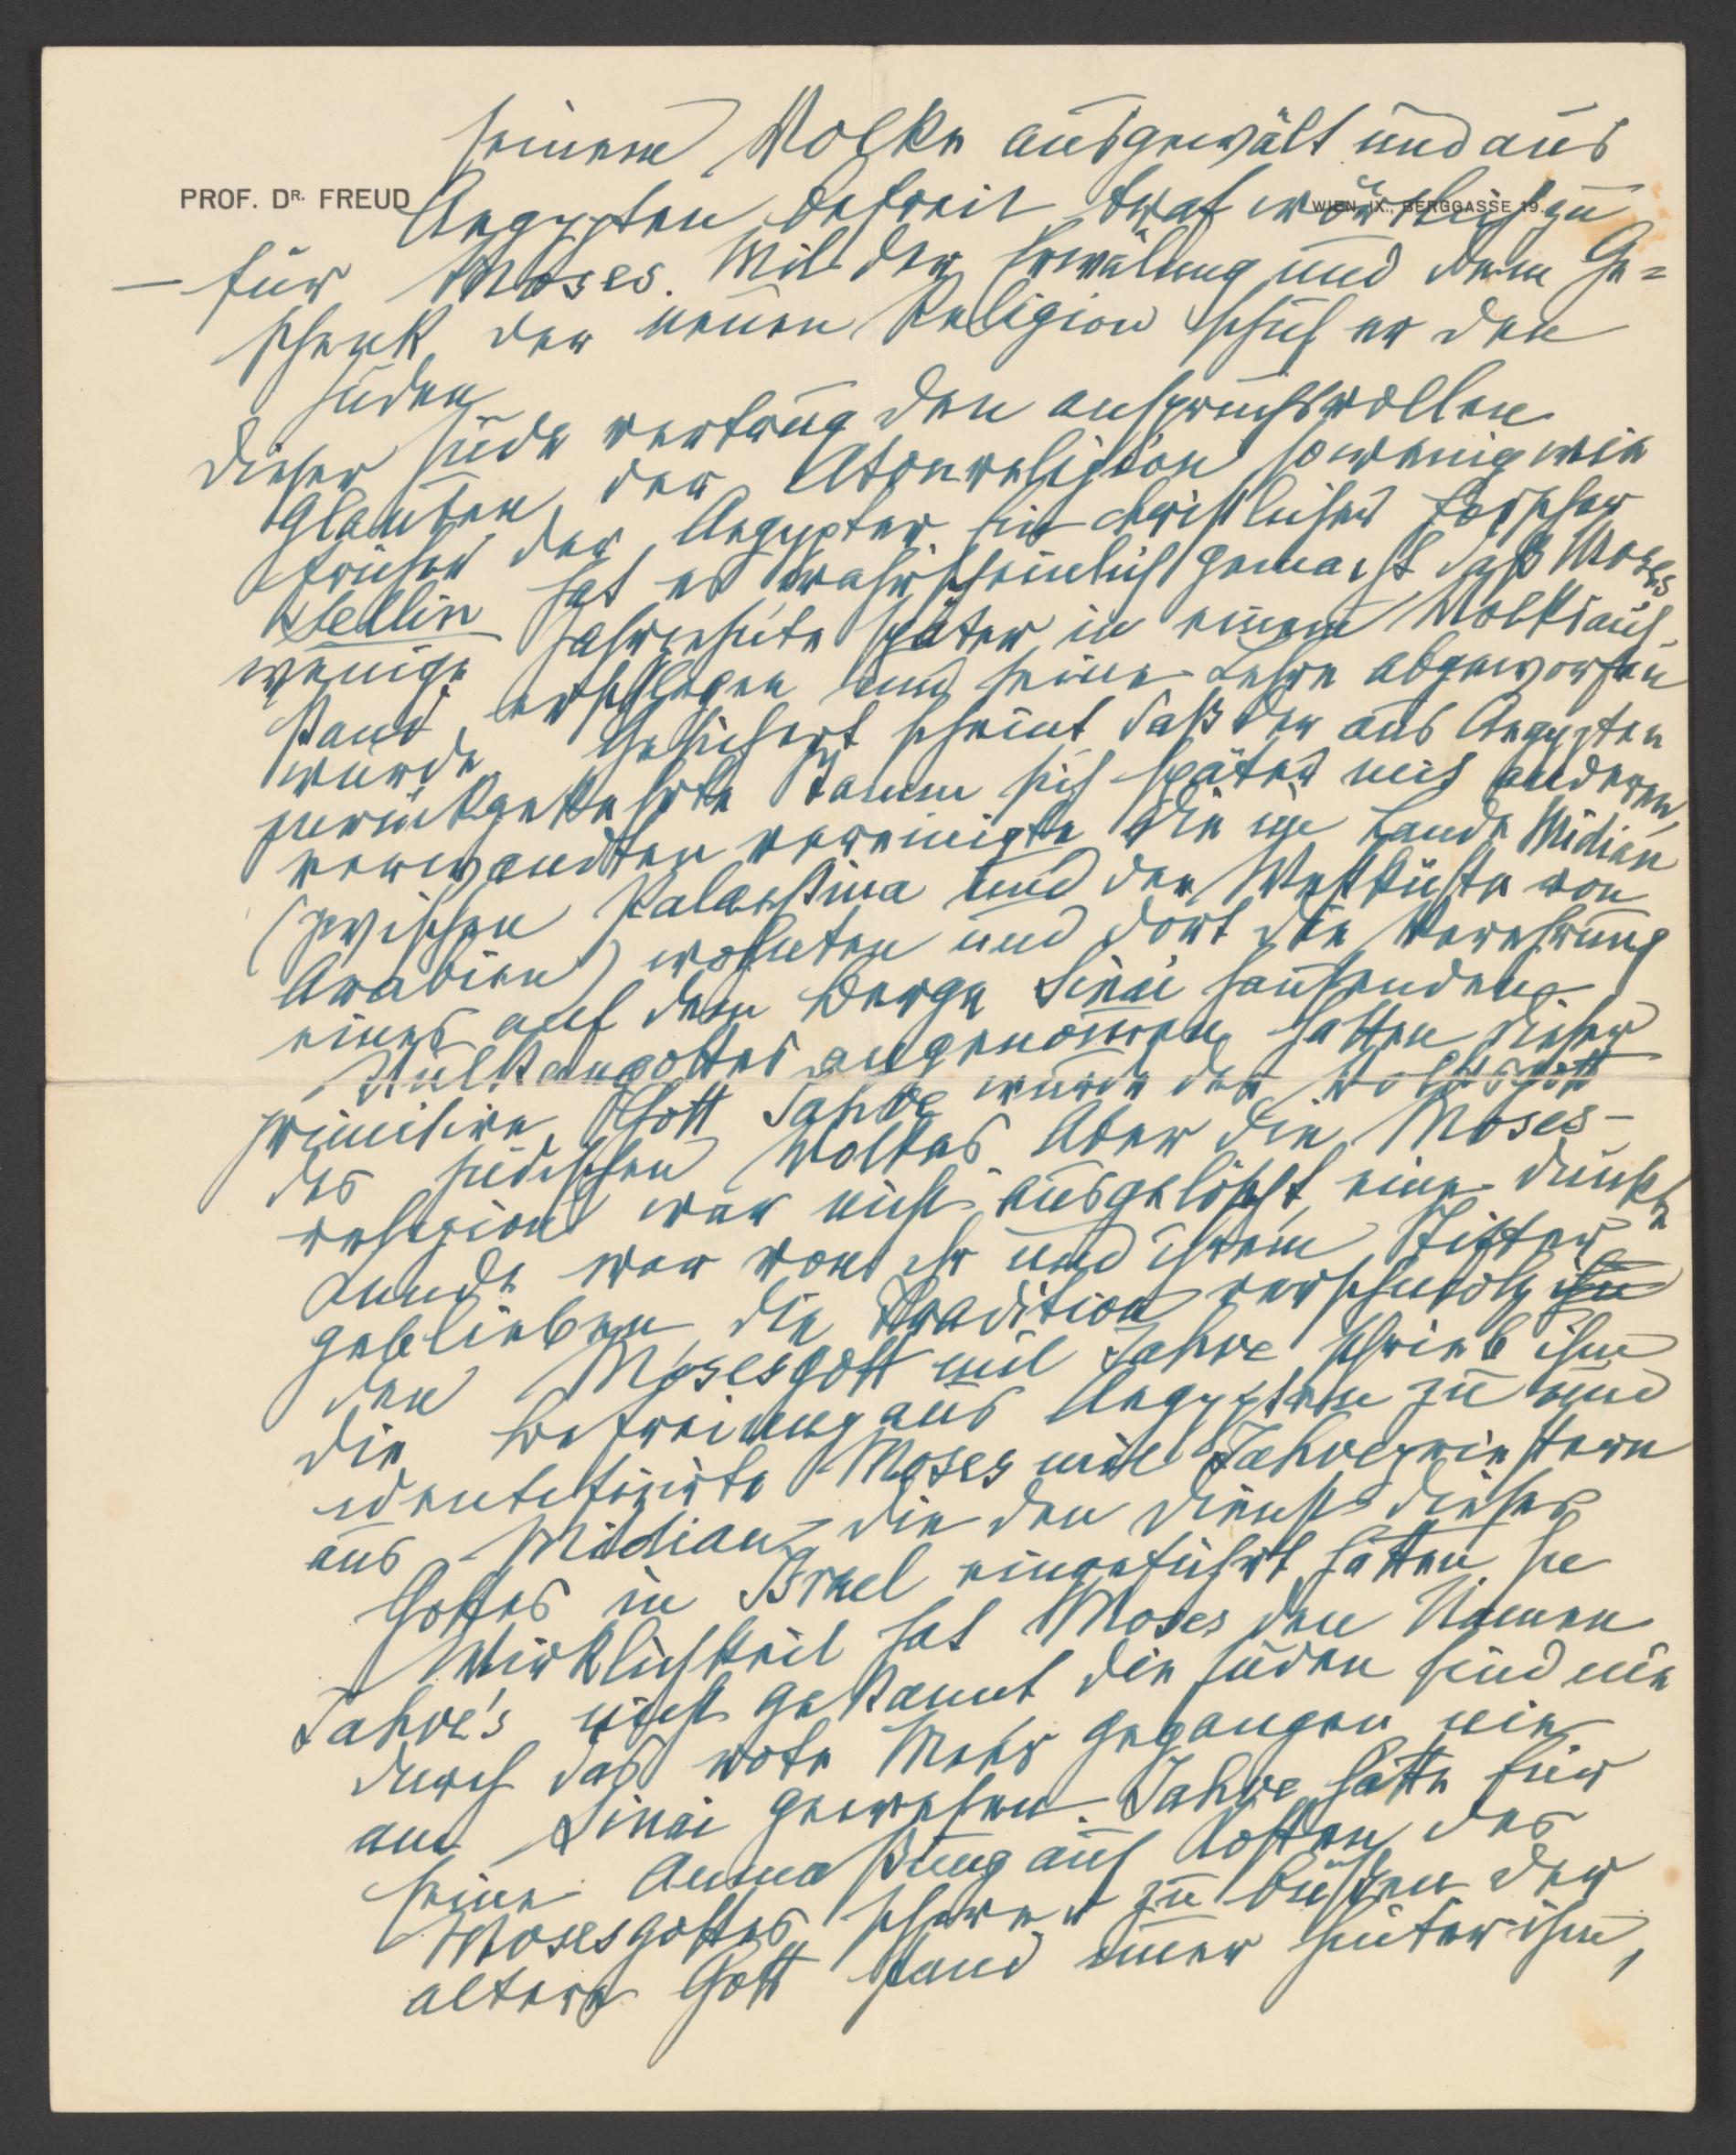 seinem Volke ausgewält und aus
PROF. DR. FREUD
WIEN, IX., BERGGASSE 19.
Aegypten befreit traf wörtlich zu
– für Moses. Mit der Erwälung und dem Ge=
schenk der neuen Religion schuf er den
Juden
Dieser Jude vertrug den anspruchsvollen
Glauben der Atonreligion so wenig wie
früher der Aegypter. Ein christlicher Forscher
Sellin hat es wahrscheinlich gemacht daß Moses
wenige Jahrzehnte später in einem Volksauf-
stand erschlagen und seine Lehre abgeworfen
wurde. Gesichert scheint daß der aus Aegypten
zurückgekehrte Stamm sich später mit anderen,
verwandten vereinigte die im Lande Midian
(zwischen Palaestina und der Westküste von
Arabien) wohnten und dort die Verehrung
eines auf dem Berge Sinai hausenden
Vulkangottes angenommen hatten Dieser
primitive Gott Jahve wurde der Volksgott
des jüdischen Volkes. Aber die Moses-
religion war nicht ausgelöscht, eine dunkle
Kunde war von ihr und ihrem Stifter
geblieben, die Tradition verschmolz
den Mosesgott mit Jahve schrieb ihm
die Befreiung aus Aegypten zu und
identifizirte Moses mit Jahvepriestern
aus Midian, die den Dienst dieses
Gottes in Israel eingeführt hatten. In
Wirklichkeit hat Moses den Namen
Jahve's nicht gekannt die Juden sind nie
durch das rote Meer gegangen nie
am Sinai gewesen. Jahve hatte für
seine Anmaßung auf Kosten des
Mosesgottes schwer zu büßen der
ältere Gott stand immer hinter ihm,